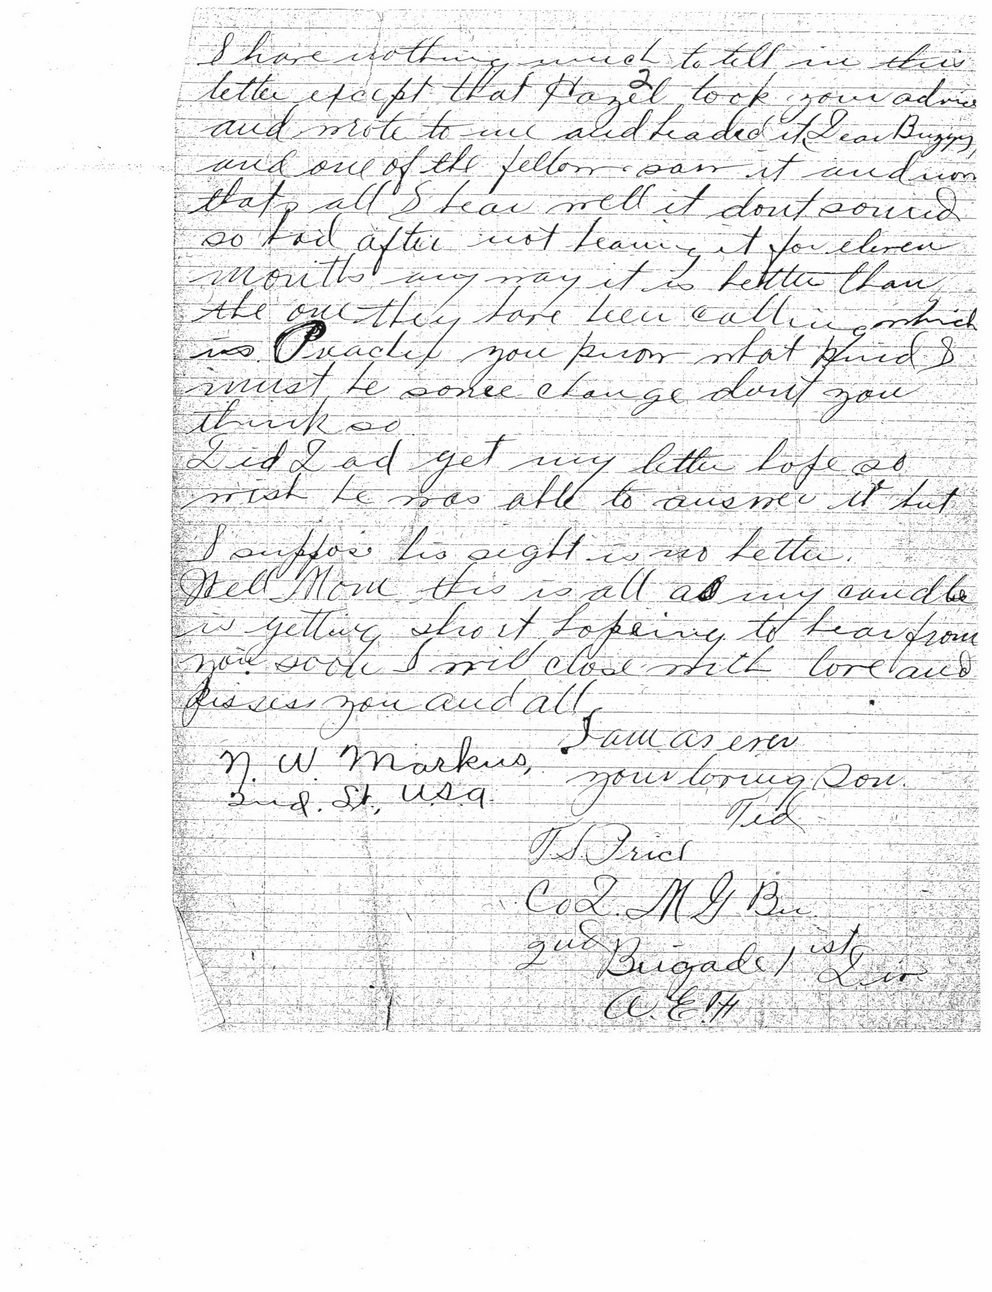 I have nothing much to tell in this
2
letter except that Hazel took your advice
and wrote to me and headed it Dear Buzzy,
and one of the fellows saw it and now
thats all I hear well it dont sound
so bad after not hearing it for eleven
months anyway it is better than
the one they have been calling which
is you know what kind I
must be some change dont you
think so
Did Dad get my letter hope so
wish he was able to answer it but
I suppose his sight is no better.
Well Mom this is all as my candle
is getting short hopeing to hear from
you soon I will close with love and
kisses you and all
I am as ever
your loving son.
Ted
N. W. Markus,
2nd. Lt, U.S.A.
T S Price
Co D. M G Bn
2nd Brigade 1st Div
A.E.F